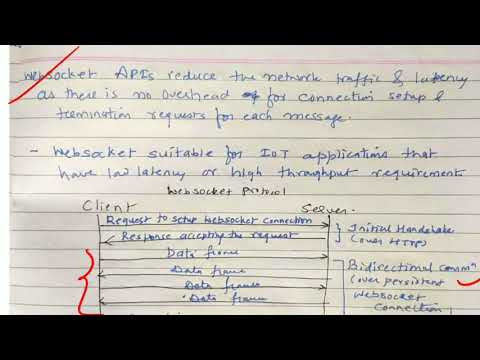 Websocket APIs reduce the network traffic & latency
as there is no overhead of for connection setup &
termination requests for each message.
- Websocket suitable for IoT applications that
have low latency or high throughput requirement
Websocket Protocol
Client Server.
Request to setup Websocket connection
Response accepting the request
} Initial Handshake
(over HTTP)
Data frame
Data frame
Data frames
Data frame
Bidirectional commn
(over persistent
Websocket
Connection)